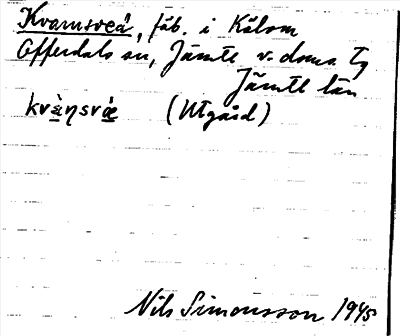 Kvarnsveá, fäb. i Kålom
Offerdals sn, Jämtl. v. doms. tg
Jämtl. län
kvàŋsvǽ (Utgård)
Nils Simonsson 1945